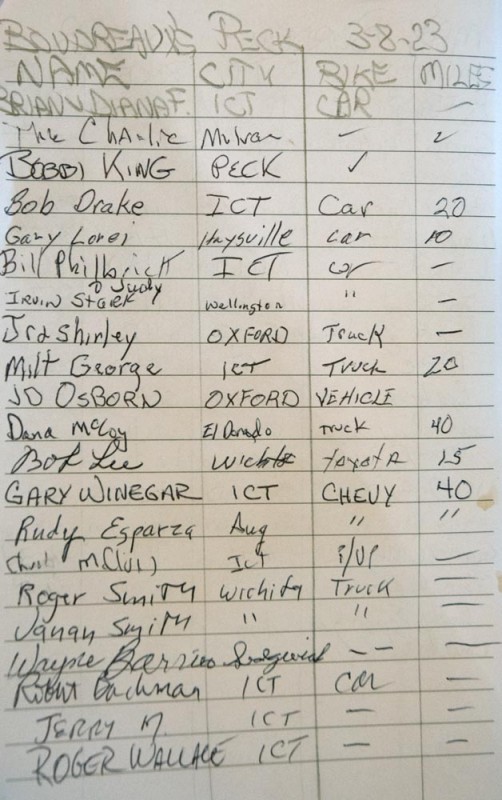 BOUDREAUX'S PECK 3-8-23
NAME CITY BIKE MILES
BRIAN & DIANA F. ICT CAR —
Charlie Mulvan — 2
BOBBI KING PECK ✓
Bob Drake ICT Car 20
Gary Lorei Haysville car 10
Bill Philbrick ICT car —
& Judy
IRVIN STARK Wellington " —
J r d Shirley OXFORD Truck —
Milt George ICT Truck 20
JD OSBORN OXFORD VEHICLE
Dana McCoy El Dorado Truck 40
Bob Lee Wichita Toyota 15
GARY WINEGAR ICT CHEVY 40
Rudy Esparza Aug " "
ICT P/UP —
Roger Smith Wichita Truck —
Smith " " —
Wayne — — —
Robert Bachman ICT Car —
JERRY M. ICT — —
ROGER WALLACE ICT — —